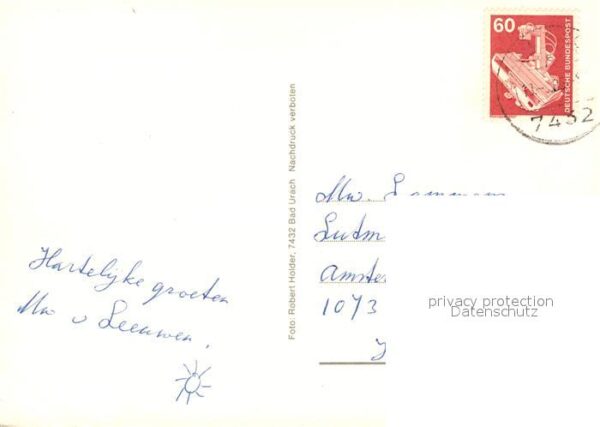 60
DEUTSCHE BUNDESPOST
7432
Foto: Robert Holder, 7432 Bad Urach Nachdruck verboten
Hartelijke groeten
Mw v Leeuwen,
Mw.
Ludm
Amste
1073
privacy protection
Datenschutz